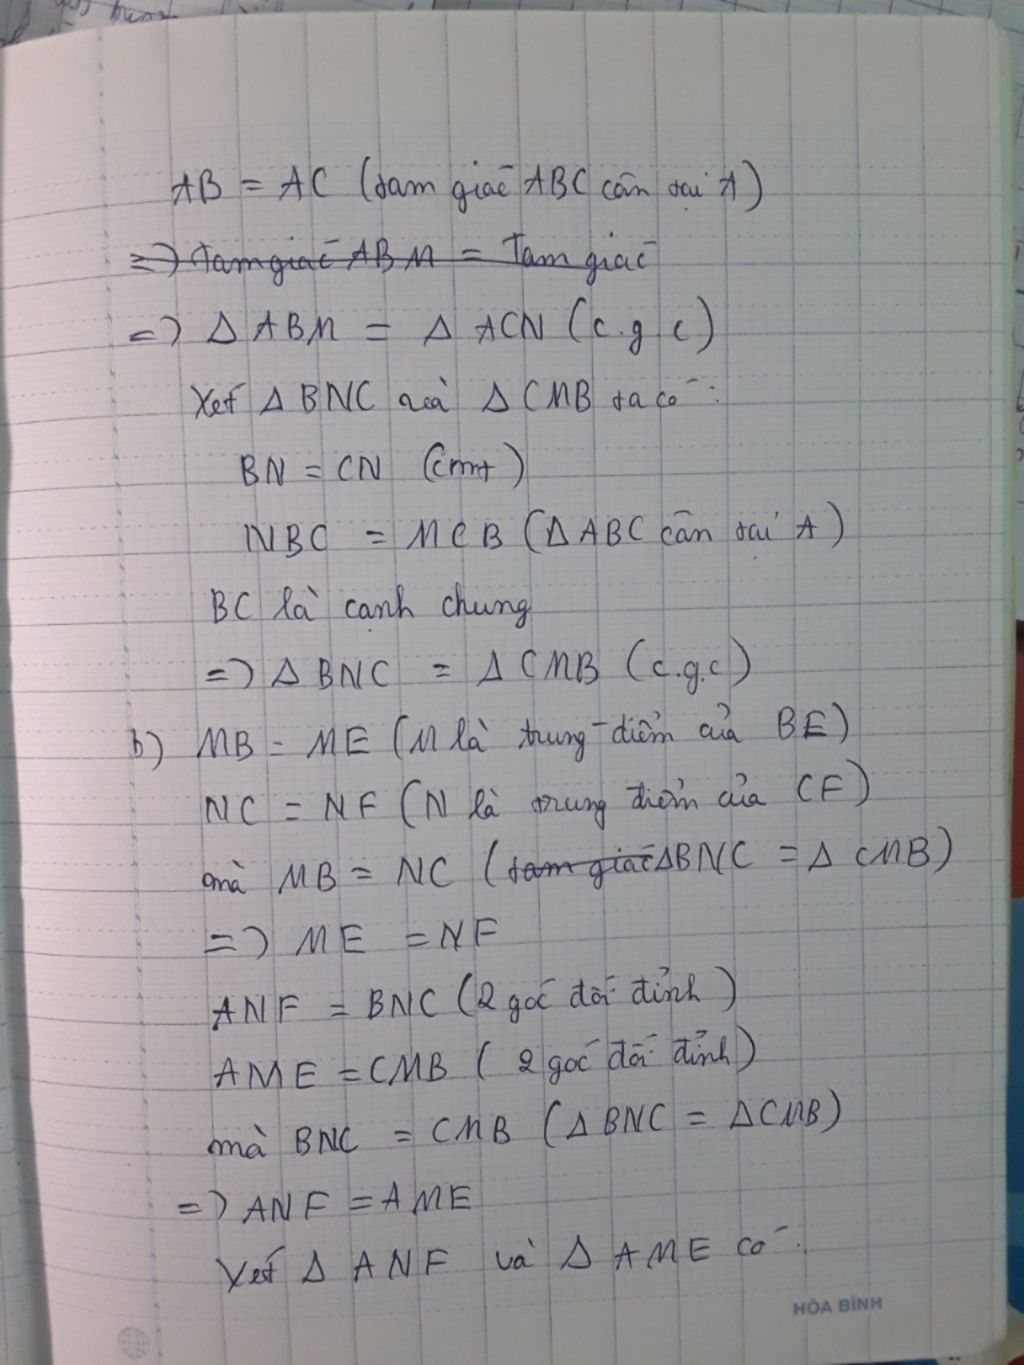 AB = AC (tam giác ABC cân tại A)
=> tam giác ABM = Tam giác
=> Δ ABM = Δ ACN (c.g.c)
Xét Δ BNC và Δ CMB ta có:
BN = CN (cmt)
NBC = MCB (Δ ABC cân tại A)
BC là cạnh chung
=> Δ BNC = Δ CMB (c.g.c)
b) MB = ME (M là trung điểm của BE)
NC = NF (N là trung điểm của CF)
mà MB = NC (tam giác ΔBNC = Δ CMB)
=> ME = NF
ANF = BNC (2 góc đối đỉnh)
AME = CMB (2 góc đối đỉnh)
mà BNC = CMB (Δ BNC = ΔCMB)
=> ANF = AME
Xét Δ ANF và Δ AME có:
HÒA BÌNH